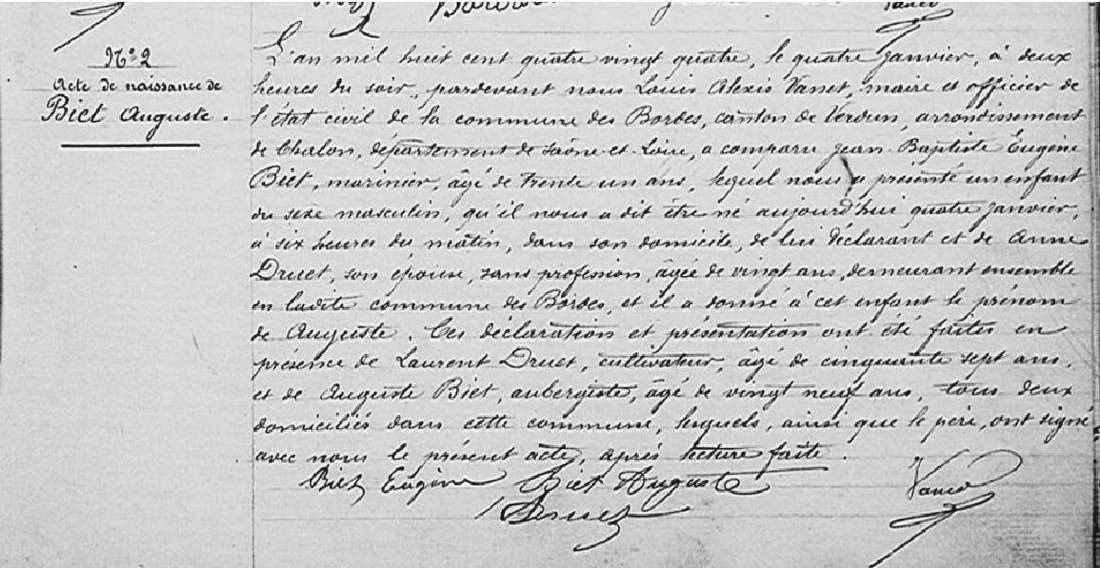 N° 2
Acte de naissance de
Biet Auguste.
L'an mil huit cent quatre vingt quatre, le quatre janvier, à deux
heures du soir, pardevant nous Louis Alexis Vanet, maire et officier de
l'état civil de la commune des Bordes, canton de Verdun, arrondissement
de Chalon, département de Saône-et-Loire, a comparu Jean Baptiste Eugène
Biet, marinier, âgé de trente un ans, lequel nous a présenté un enfant
du sexe masculin, qu'il nous a dit être né aujourd'hui quatre janvier,
à six heures du matin, dans son domicile, de lui déclarant et de Anne
Druet, son épouse, sans profession, âgée de vingt ans, demeurant ensemble
en ladite commune des Bordes, et il a donné à cet enfant le prénom
de Auguste. Ces déclaration et présentation ont été faites en
présence de Laurent Druet, cultivateur, âgé de cinquante sept ans,
et de Auguste Biet, aubergiste, âgé de vingt neuf ans, tous deux
domiciliés dans cette commune, lesquels, ainsi que le père, ont signé
avec nous le présent acte, après lecture faite.
Biet Eugène Biet Auguste Vanet
Druet